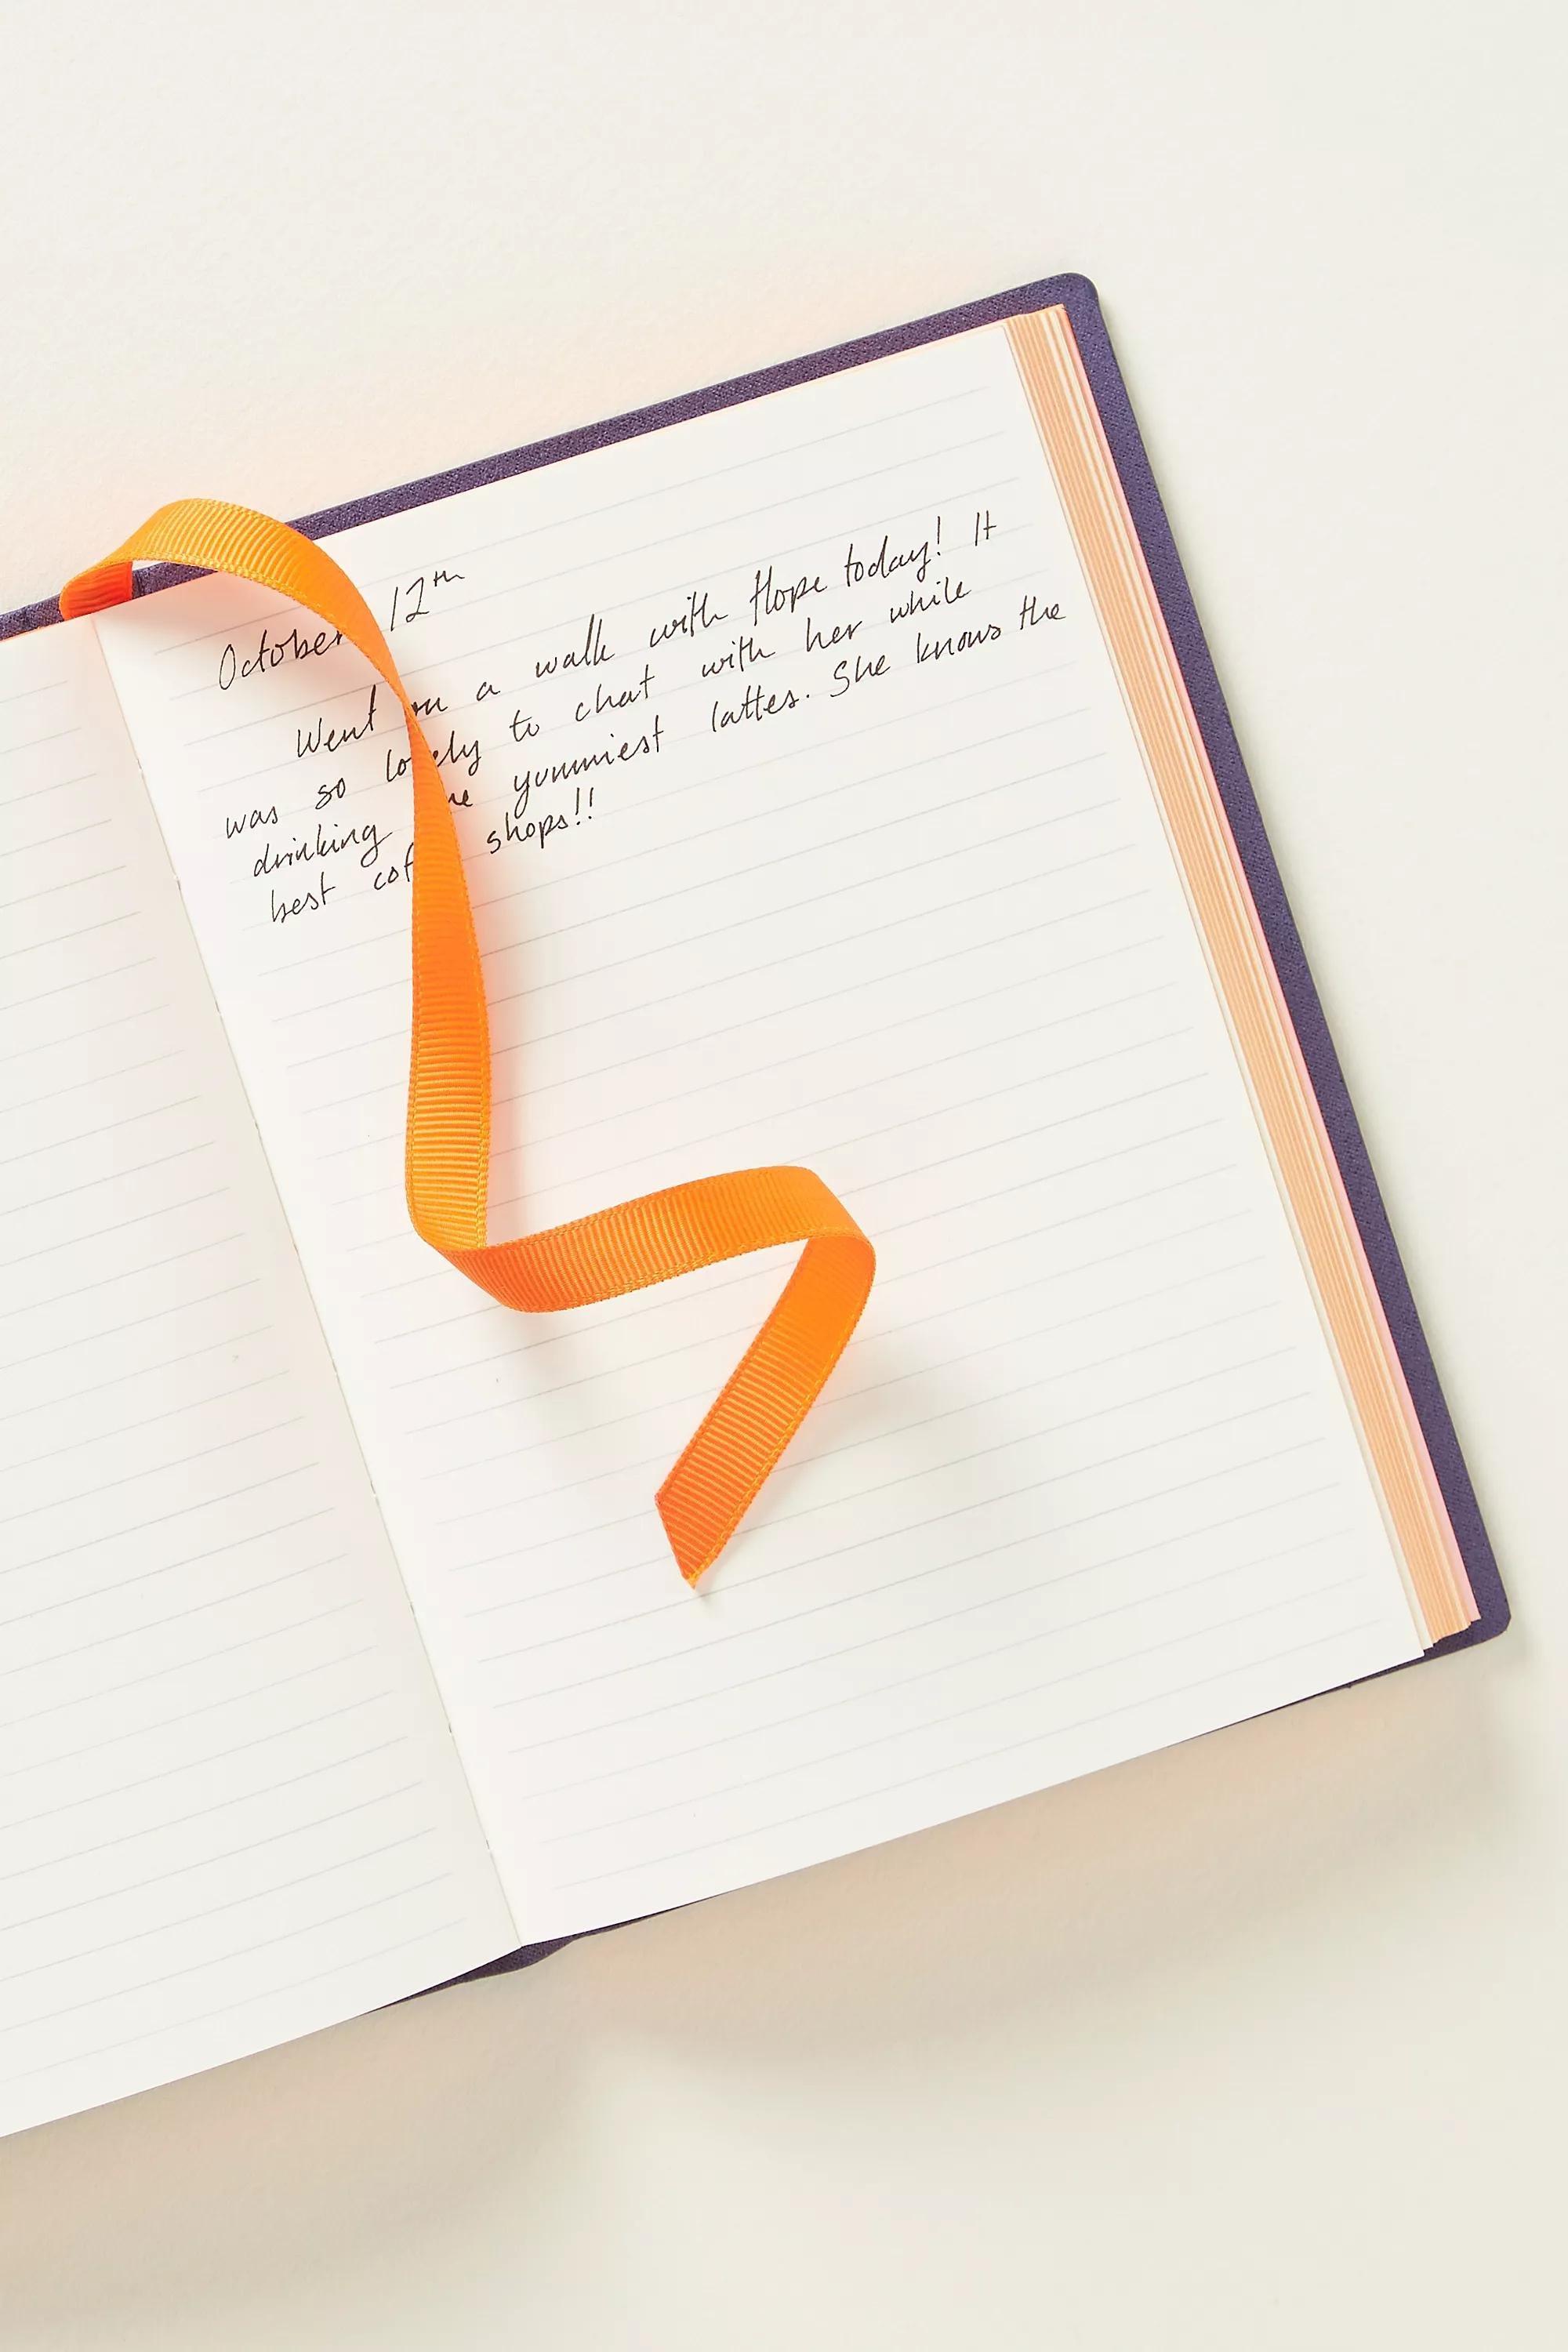 October 12th
Went on a walk with Hope today! It
was so lovely to chat with her while
drinking the yummiest lattes. She knows the
best coffee shops!!